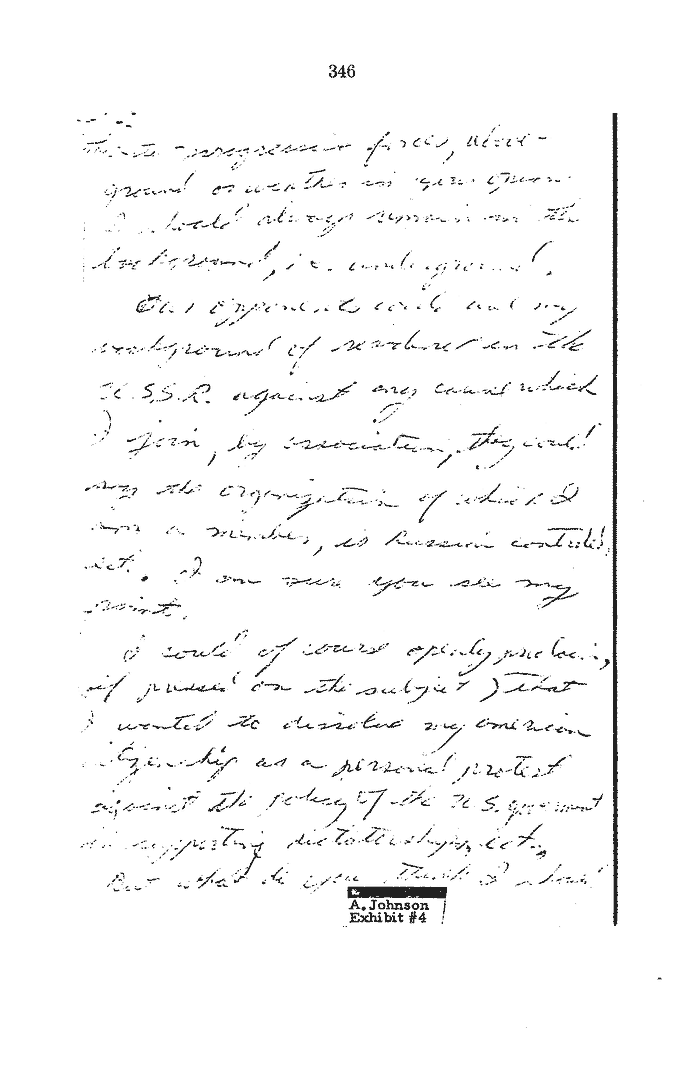 346
-progressive forces, above-
ground or weather in your opinion
I should always remain in the
background, i.e. underground.
Our opponents could use my
background of residence in the
U.S.S.R. against any cause which
I join, by association, they could
say the organization of which I
am a member, is Russian controled,
ect. I am sure you see my
point.
I could of course openly proclaim,
if pressed on the subject) that
I wanted to dissolve my american
citizenship as a personal protest
against the policy of the U.S. goverment
in supporting dictatorships, ect,
But what do you think I should
A. Johnson
Exhibit #4